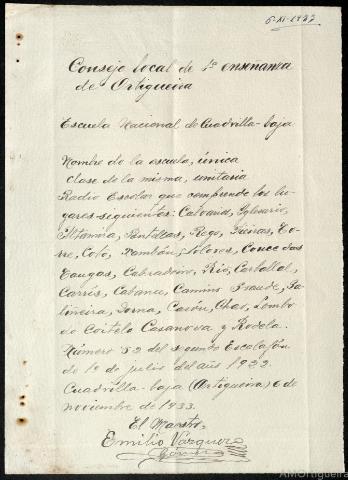 6-XI-1933
Consejo local de 1ª enseñanza
de Ortigueira
Escuela Nacional de Cuadrilla-baja
Nombre de la escuela, única
Clase de la misma, unitaria
Radio Escolar que comprende los lu-
gares siguientes: Calvario, Iglesario,
Altamira, Puntelias, Rego, Pieiras, Tor-
re, Coto, Rambón, Soloros, Couce das
Eaugas, Cabradoiro, Río, Carballal,
Carrís, Cabana, Camino Grande, Sa-
liñeira, Dorna, Casón, Chao, Lombo
do Coitelo Casanova y Rodela.
Número 52 del segundo Escalafón
de 1º de julio del año 1933.
Cuadrilla-baja (Ortigueira) 6 de
noviembre de 1933.
El Maestro,
Emilio Vázquez
AMOrtigueira